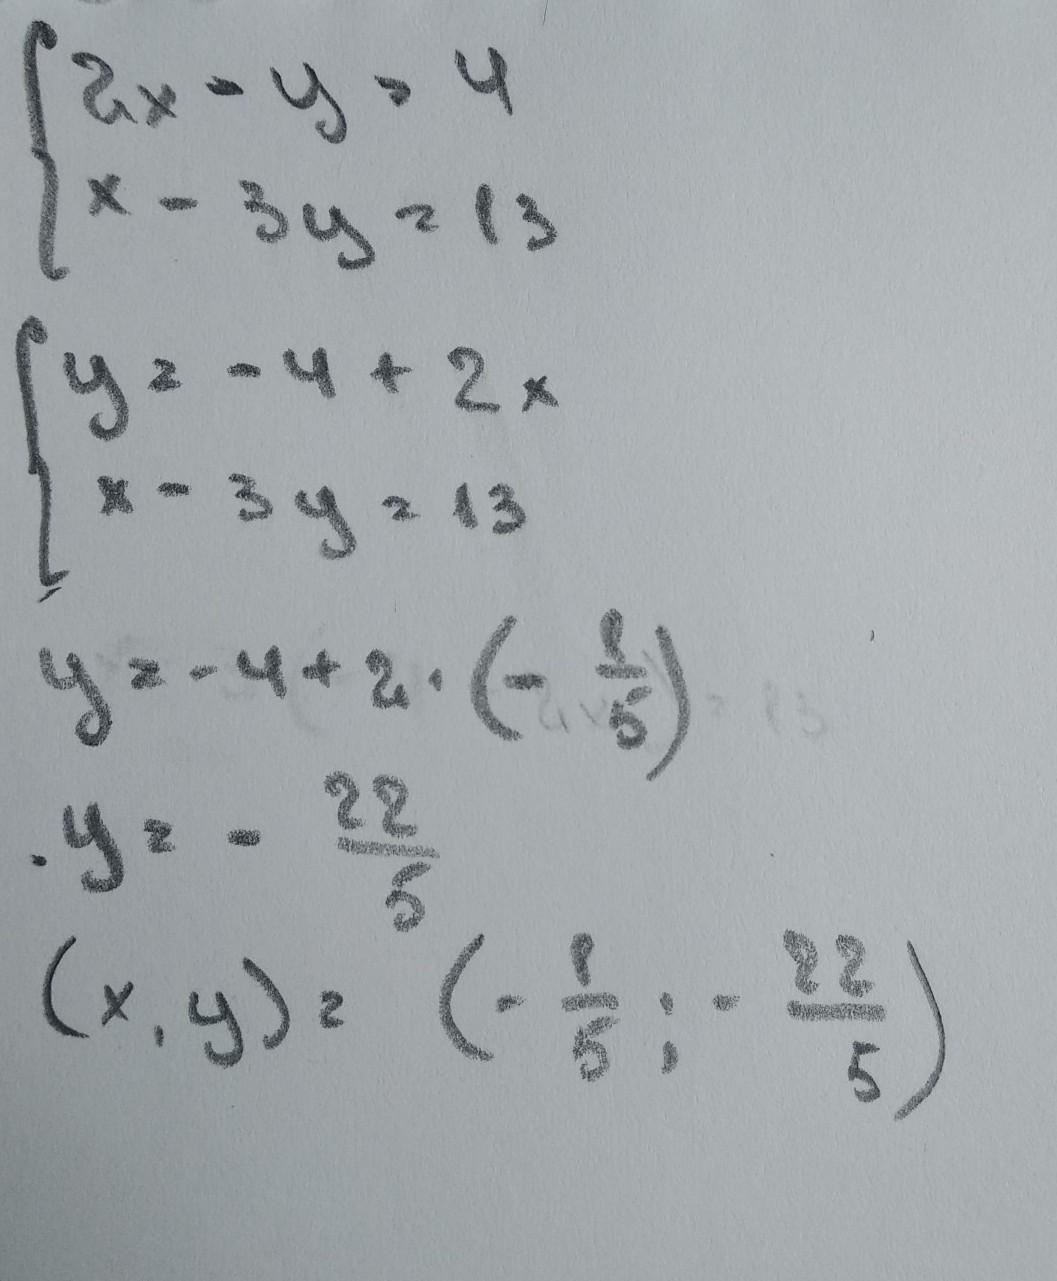 2x - y = 4
x - 3y = 13
y = -4 + 2x
x - 3y = 13
y = -4 + 2 · (- 1/5)
y = - 22/5
(x, y) = (- 1/5 ; - 22/5)